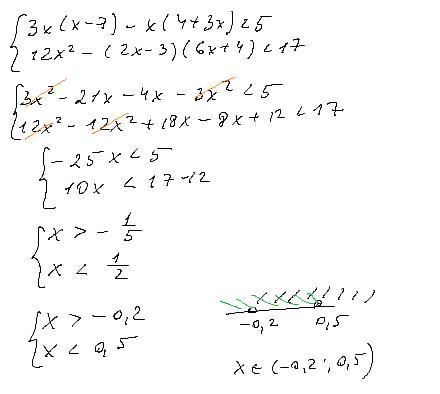 3x(x-7) - x(4+3x) < 5
12x² - (2x-3)(6x+4) < 17
3x² - 21x - 4x - 3x² < 5
12x² - 12x² + 18x - 8x + 12 < 17
-25x < 5
10x < 17-12
x > - 1/5
x < 1/2
x > -0,2
x < 0,5
-0,2 0,5
x ∈ (-0,2; 0,5)